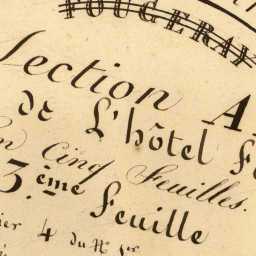 FOUGERAY
Section A
de L'hôtel
en Cinq Feuilles.
3.ème Feuille
4 du N.º 1er